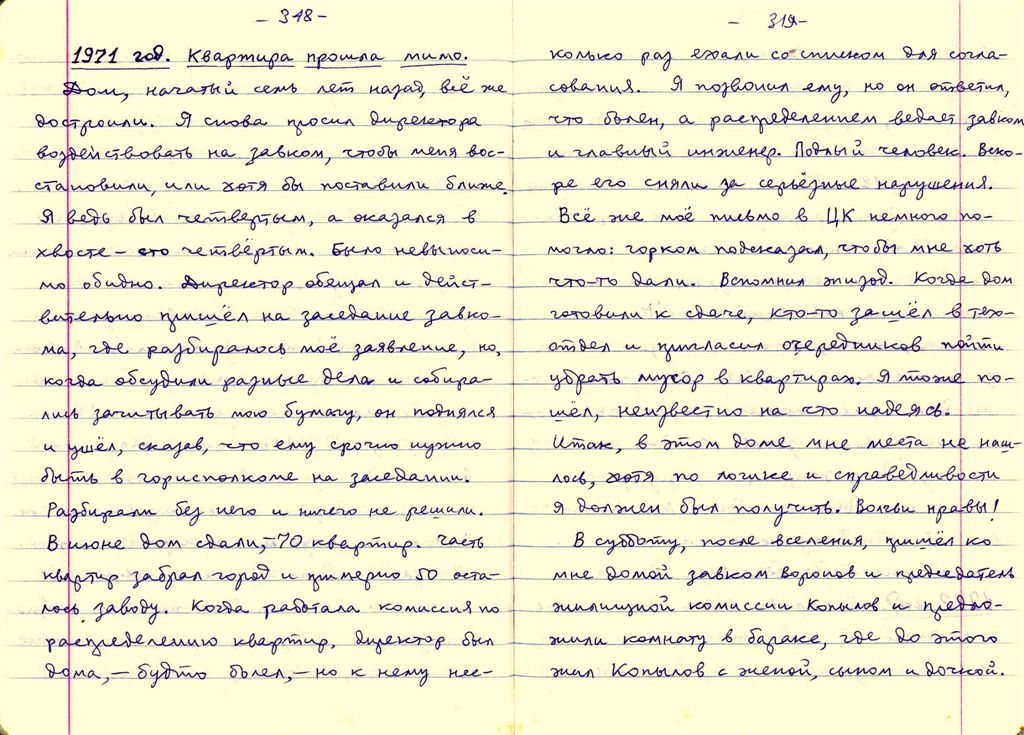 - 318 -
1971 год. Квартира прошла мимо.
Дом, начатый семь лет назад, всё же
достроили. Я снова просил директора
воздействовать на завком, чтобы меня вос-
становили, или хотя бы поставили ближе.
Я ведь был четвертым, а оказался в
хвосте – сто четвёртым. Было невыноси-
мо обидно. Директор обещал и дейст-
вительно пришёл на заседание завко-
ма, где разбиралось моё заявление, но,
когда обсудили разные дела и собира-
лись зачитывать мою бумагу, он поднялся
и ушёл, сказав, что ему срочно нужно
быть в горисполкоме на заседании.
Разбирали без него и ничего не решили.
В июне дом сдали, – 70 квартир. Часть
квартир забрал город и примерно 50 оста-
лось заводу. Когда работала комиссия по
распределению квартир, директор был
дома, – будто болел, – но к нему нес-
- 319 -
колько раз ехали со списком для согла-
сования. Я позвонил ему, но он ответил,
что болен, а распределением ведает завком
и главный инженер. Подлый человек. Вско-
ре его сняли за серьёзные нарушения.
Всё же моё письмо в ЦК немного по-
могло: горком подсказал, чтобы мне хоть
что-то дали. Вспомнил эпизод. Когда дом
готовили к сдаче, кто-то зашёл в тех-
отдел и пригласил очередников пойти
убрать мусор в квартирах. Я тоже по-
шёл, неизвестно на что надеясь.
Итак, в этом доме мне места не наш-
лось, хотя по логике и справедливости
я должен был получить. Волчьи нравы!
В субботу, после вселения, пришёл ко
мне домой завком Воронов и председатель
жилищной комиссии Копылов и предло-
жили комнату в бараке, где до этого
жил Копылов с женой, сыном и дочкой.